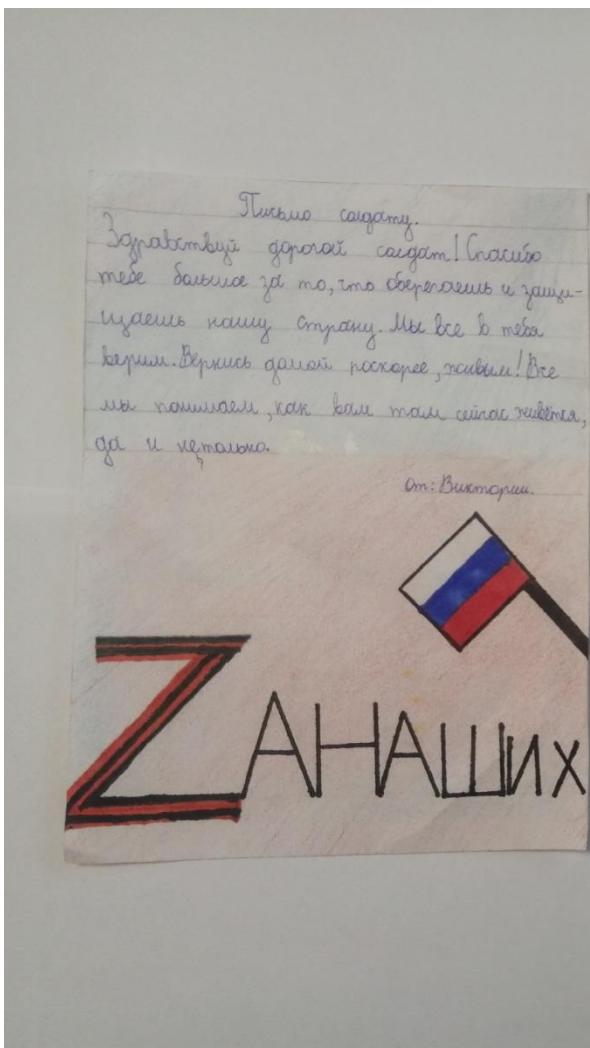 Письмо солдату.
Здравствуй дорогой солдат! Спасибо
тебе большое за то, что оберегаешь и защи-
щаешь нашу страну. Мы все в тебя
верим. Вернись домой поскорее, живым! Все
мы понимаем, как вам там сейчас живётся,
да и не только.
от: Виктории.
ZАНАШИХ